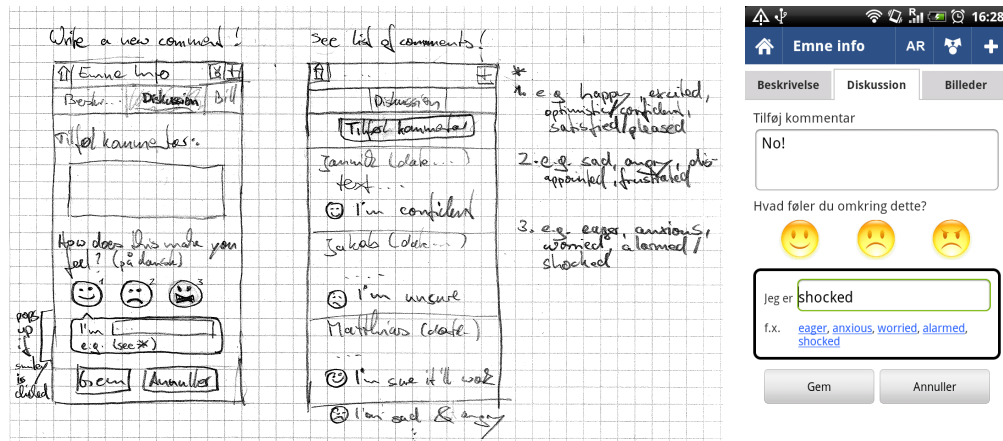 Write a new comment!
Emne Info
Besk... Diskussion Bill
Tilføj kommentar:
How does this make you
feel? (på dansk)
1 2 3
I'm
e.g. (see *)
pops
up
if
smiley
is
clicked
Gem Annuller
See list of comments!
...
Diskussion
Tilføj kommentar
Jannick (date....)
text....
I'm confident
Jakob (date...)
....
I'm unsure
Matthias (date..)
...
I'm sure it'll work
I'm sad & angry
*
1. e.g. happy, excited,
optimistic/confident,
satisfied/pleased
2. e.g. sad, angry, dis-
appointed, frustrated
3. e.g. eager, anxious,
worried, alarmed/
shocked
16:28
Emne info AR
Beskrivelse Diskussion Billeder
Tilføj kommentar
No!
Hvad føler du omkring dette?
Jeg er shocked
f.x. eager, anxious, worried, alarmed,
shocked
Gem Annuller